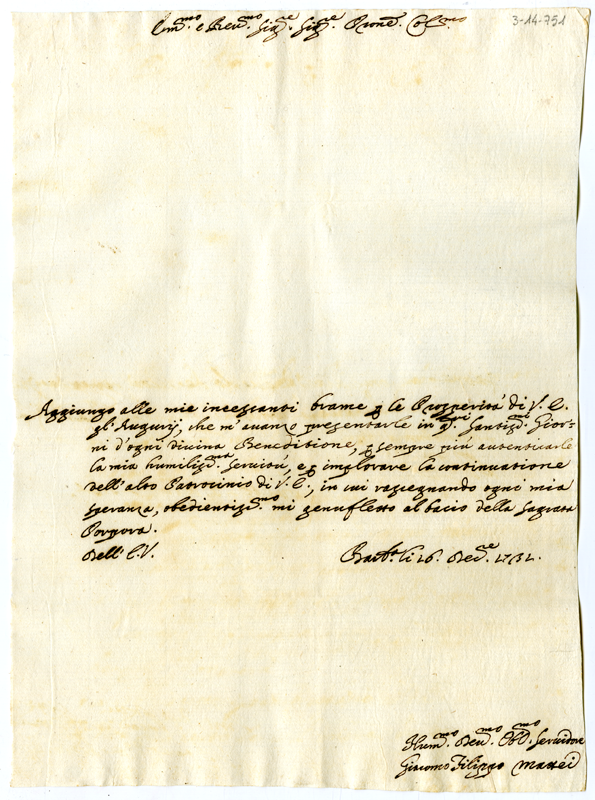 Em.mo e Reu.mo Sig.re Sig.re Prone. Col.mo
3-14-751
Aggiungo alle mie incessanti brame p le Prosperità di V. E.
gl'Augurij, che m'auanzo presentarle in q.sti Santiss.mi Gior-
ni d'ogni diuina Beneditione, p sempre più autenticarle
la mia humiliss.ma Seruitù, e p implorare la continuatione
dell'alto Patrocinio di V. E., in cui rassegnando ogni mia
speranza, obedientiss.mo mi genufletto al bacio della Sagrata
Porpora.
Dell' E. V.
li 16. Dec.re 1732.
Hum.mo Deu.mo Obl.mo Seruidore
Giacomo Filippo Mattei